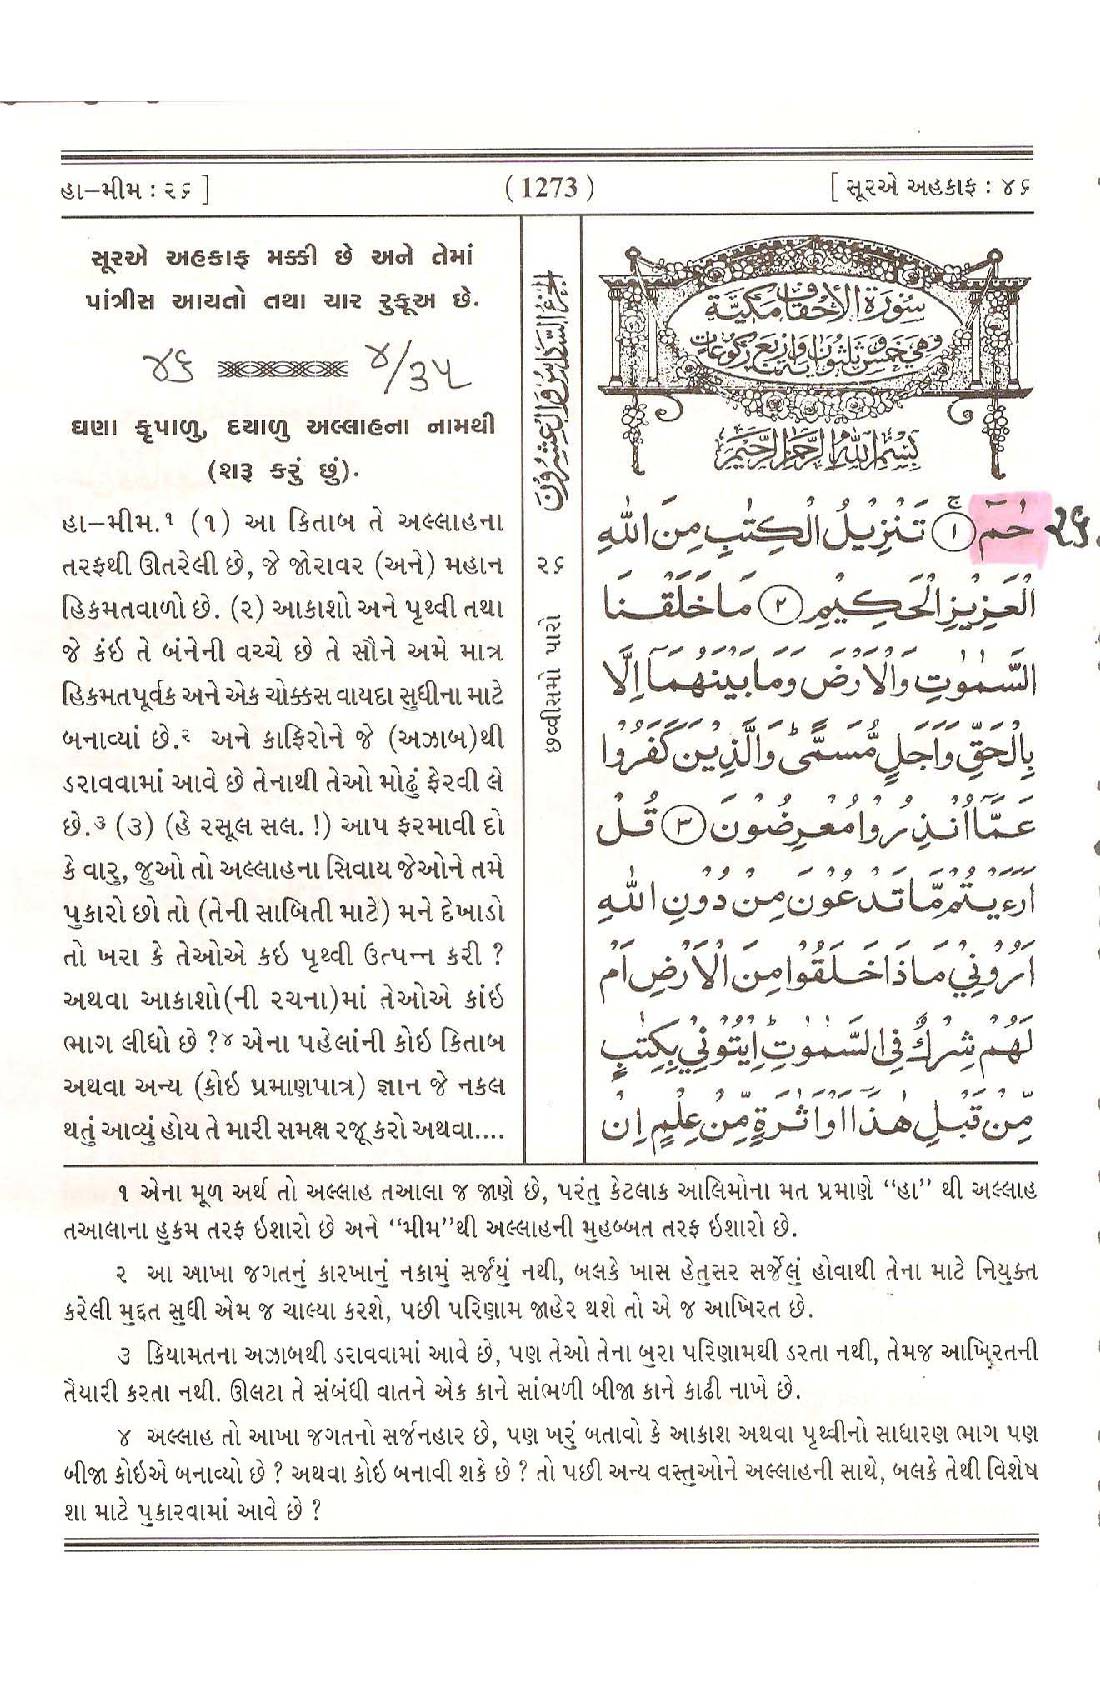 હા–મીમ : ૨૬ ]
( 1273 )
[ સૂરએ અહકાફ : ૪૬
સૂરએ અહકાફ મક્કી છે અને તેમાં
પાંત્રીસ આયતો તથા ચાર રુકૂઅ છે.
૪૬
૪/૩૫
ઘણા કૃપાળુ, દયાળુ અલ્લાહના નામથી
(શરૂ કરું છું).
હા–મીમ.૧ (૧) આ કિતાબ તે અલ્લાહના
તરફથી ઊતરેલી છે, જે જોરાવર (અને) મહાન
હિકમતવાળો છે. (૨) આકાશો અને પૃથ્વી તથા
જે કંઇ તે બંનેની વચ્ચે છે તે સૌને અમે માત્ર
હિકમતપૂર્વક અને એક ચોક્કસ વાયદા સુધીના માટે
બનાવ્યાં છે.૨ અને કાફિરોને જે (અઝાબ)થી
ડરાવવામાં આવે છે તેનાથી તેઓ મોઢું ફેરવી લે
છે.૩ (૩) (હે રસૂલ સલ. !) આપ ફરમાવી દો
કે વારુ, જુઓ તો અલ્લાહના સિવાય જેઓને તમે
પુકારો છો તો (તેની સાબિતી માટે) મને દેખાડો
તો ખરા કે તેઓએ કઇ પૃથ્વી ઉત્પન્ન કરી ?
અથવા આકાશો(ની રચના)માં તેઓએ કાંઇ
ભાગ લીધો છે ?૪ એના પહેલાંની કોઇ કિતાબ
અથવા અન્ય (કોઇ પ્રમાણપાત્ર) જ્ઞાન જે નકલ
થતું આવ્યું હોય તે મારી સમક્ષ રજૂ કરો અથવા....
الجزء السادس والعشرون
૨૬
છવ્વીસમો પારો
سُوْرَةُ الْاَحْقَافِ مَكِّيَّةٌ
وَهِيَ خَمْسٌ وَّثَلٰثُوْنَ اٰيَةً وَّاَرْبَعُ رُكُوْعَاتٍ
بِسْمِ اللّٰهِ الرَّحْمٰنِ الرَّحِيْمِ
حٰمٓ ۚ ﴿۱﴾ تَنْزِيْلُ الْكِتٰبِ مِنَ اللّٰهِ
૨૬.
الْعَزِيْزِ الْحَكِيْمِ ﴿۲﴾ مَا خَلَقْنَا
السَّمٰوٰتِ وَالْاَرْضَ وَمَا بَيْنَهُمَاۤ اِلَّا
بِالْحَقِّ وَاَجَلٍ مُّسَمًّى ؕ وَالَّذِيْنَ كَفَرُوْا
عَمَّاۤ اُنْذِرُوْا مُعْرِضُوْنَ ﴿۳﴾ قُلْ
اَرَءَيْتُمْ مَّا تَدْعُوْنَ مِنْ دُوْنِ اللّٰهِ
اَرُوْنِيْ مَاذَا خَلَقُوْا مِنَ الْاَرْضِ اَمْ
لَهُمْ شِرْكٌ فِي السَّمٰوٰتِ ؕ اِيْتُوْنِيْ بِكِتٰبٍ
مِّنْ قَبْلِ هٰذَاۤ اَوْ اَثٰرَةٍ مِّنْ عِلْمٍ اِنْ
૧ એના મૂળ અર્થ તો અલ્લાહ તઆલા જ જાણે છે, પરંતુ કેટલાક આલિમોના મત પ્રમાણે “હા” થી અલ્લાહ
તઆલાના હુકમ તરફ ઇશારો છે અને “મીમ”થી અલ્લાહની મુહબ્બત તરફ ઇશારો છે.
૨ આ આખા જગતનું કારખાનું નકામું સર્જયું નથી, બલકે ખાસ હેતુસર સર્જેલું હોવાથી તેના માટે નિયુક્ત
કરેલી મુદ્દત સુધી એમ જ ચાલ્યા કરશે, પછી પરિણામ જાહેર થશે તો એ જ આખિરત છે.
૩ કિયામતના અઝાબથી ડરાવવામાં આવે છે, પણ તેઓ તેના બુરા પરિણામથી ડરતા નથી, તેમજ આખિરતની
તૈયારી કરતા નથી. ઊલટા તે સંબંધી વાતને એક કાને સાંભળી બીજા કાને કાઢી નાખે છે.
૪ અલ્લાહ તો આખા જગતનો સર્જનહાર છે, પણ ખરું બતાવો કે આકાશ અથવા પૃથ્વીનો સાધારણ ભાગ પણ
બીજા કોઇએ બનાવ્યો છે ? અથવા કોઇ બનાવી શકે છે ? તો પછી અન્ય વસ્તુઓને અલ્લાહની સાથે, બલકે તેથી વિશેષ
શા માટે પુકારવામાં આવે છે ?